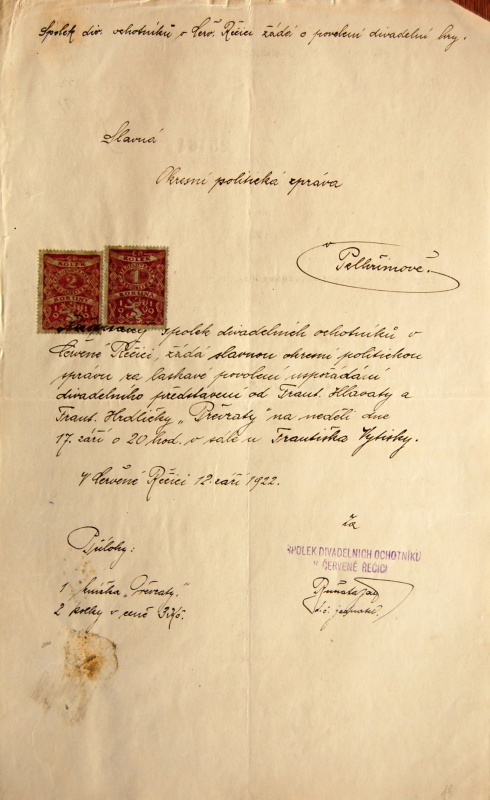 Spolek div. ochotníků v Červ. Řečici žádá o povolení divadelní hry.
Slavná
Okresní politická zpráva
v
Pelhřimově.
KOLEK
2
KORUNY
KOLEK
1
KORUNA
spolek divadelních ochotníků v
Červené Řečici, žádá slavnou okresní politickou
zprávu za laskavé povolení uspořádání
divadelního představení od Frant. Hlavaty a
Frant. Hrdličky „Převraty" na neděli dne
17. září o 20 hod. v sále u Františka Vytisky.
V Červené Řečici 12. září 1922.
Přílohy:
za
SPOLEK DIVADELNÍCH OCHOTNÍKŮ
V ČERVENÉ ŘEČICI
1 knížka „Převraty."
2 kolky v ceně 3 Kč.
t.č. jednatel.